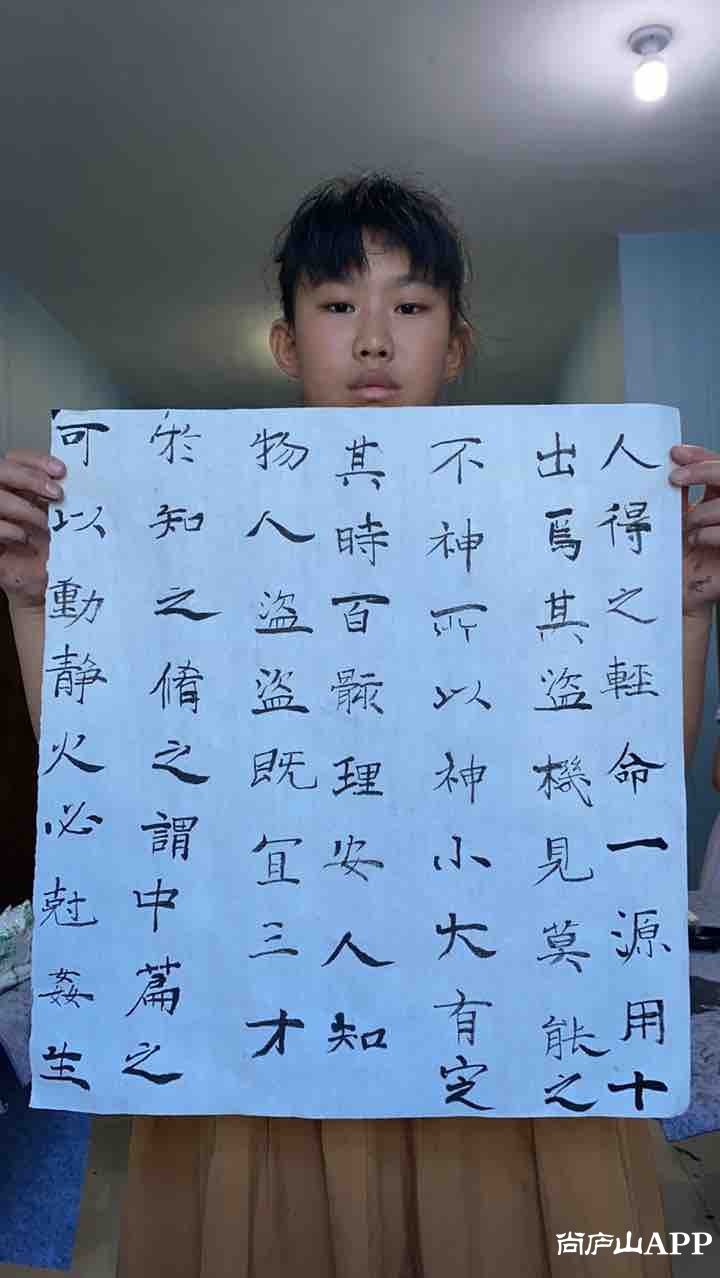 人得之輕命一源用十
出焉其盜機見莫能之
不神所以神小大有定
其時百骸理安人知
物人盜盜既宜三才
於知之脩之謂中篇之
可以動靜火必尅姦生
尚庐山APP